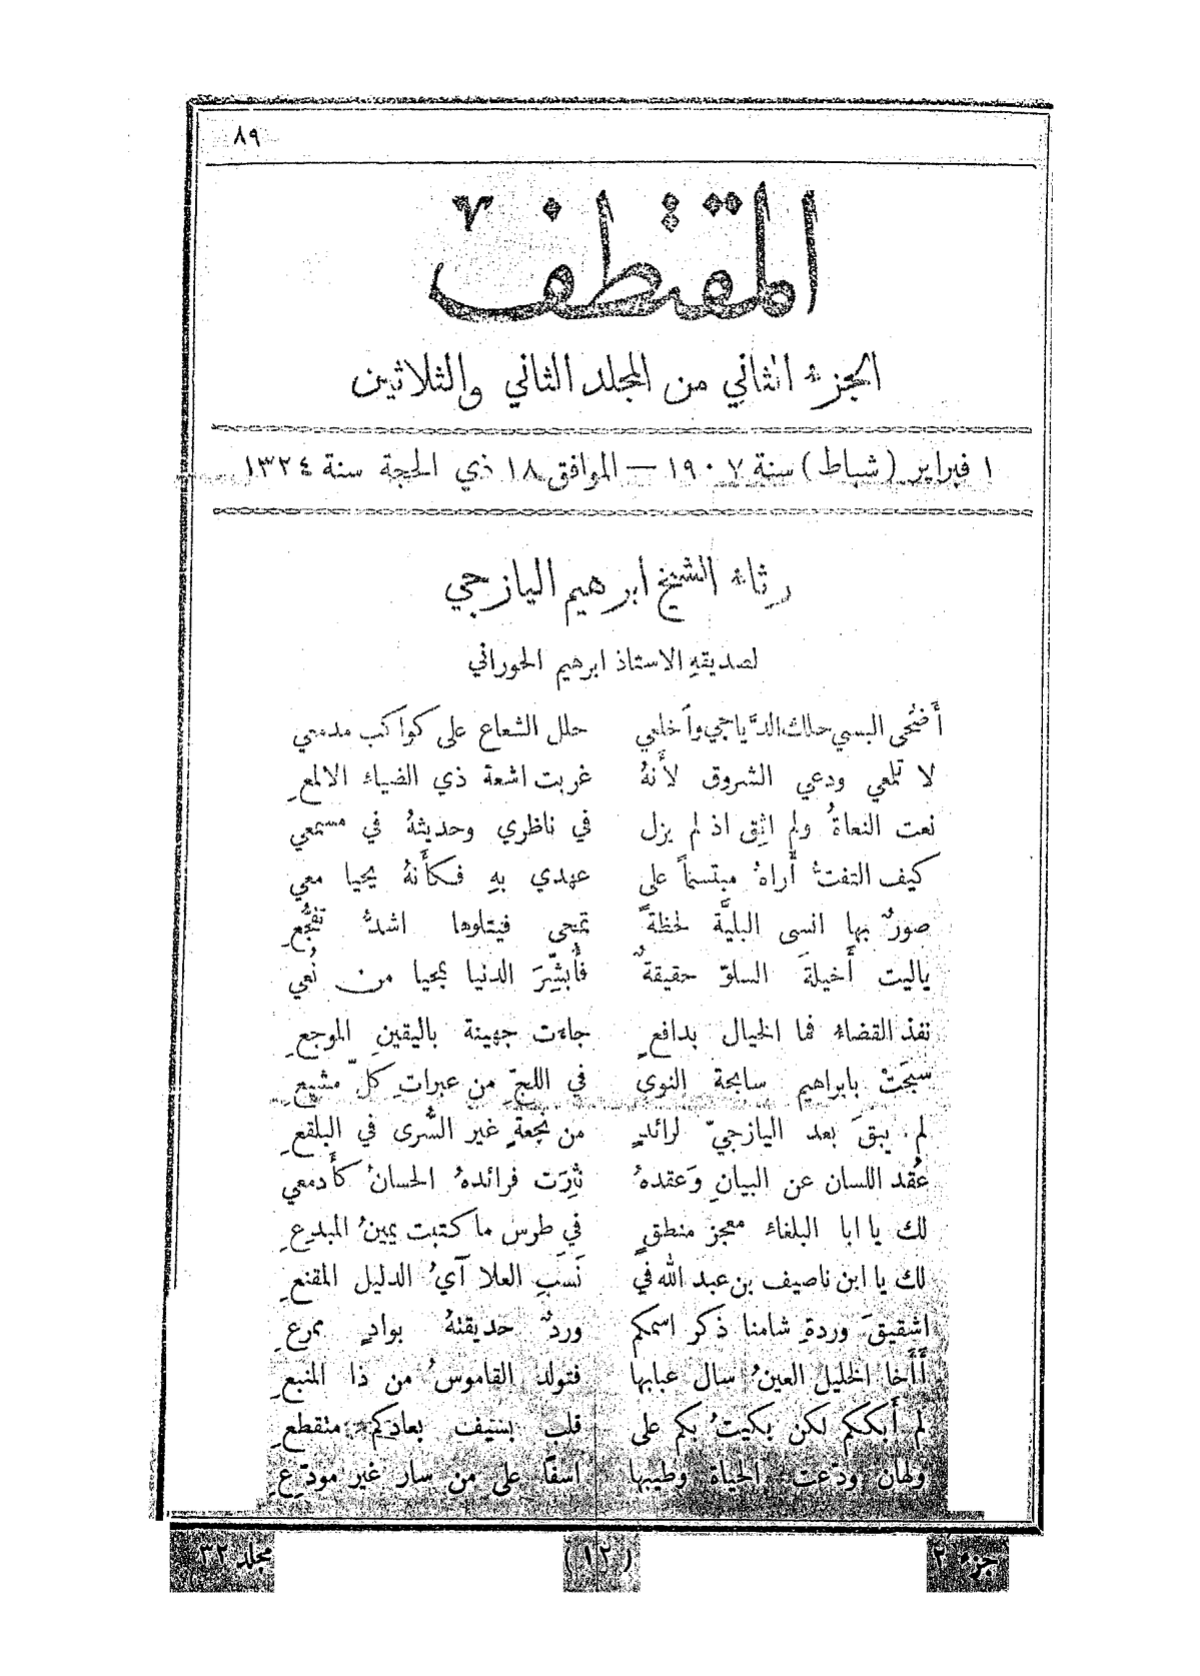 ٨٩
المقتطف
الجزء الثاني من المجلد الثاني والثلاثين
١ فبراير (شباط) سنة ١٩٠٧ — الموافق ١٨ ذي الحجة سنة ١٣٢٤
رثاء الشيخ ابرهيم اليازجي
لصديقهِ الاستاذ ابرهيم الحوراني
أَضحى البسي حلل الدَّياجي وأَخلعي حلل الشعاع على كواكب مدمعي
لا تلمعي ودعي الشروق لأنهُ غربت اشعة ذي الضياء الالمعِ
نعت النعاةُ ولم اثِق اذ لم يزل في ناظري وحديثهُ في مسمعي
كيف التفتُّ أَراهُ مبتسماً على عهدي بهِ فكأَنهُ يحيا معي
صورٌ بها انسى البليَّة لحظةً تمحى فيتلوها اشدُّ تفجُّعِ
ياليت أَخيلةَ السلوّ حقيقةٌ فأُبشِّرَ الدنيا بمحيا من نُعي
نفذ القضاء فما الخيال بدافعٍ جاءت جهينة باليقينِ الموجعِ
سبحَتْ بابراهيم سابحة النوى في اللجّ من عبراتِ كلّ مشيعِ
لم يبقَ بعد اليازجيّ لرائدٍ من نجعةٍ غير السُّرى في البلقعِ
عُقد اللسان عن البيانِ وَعقدهُ نثِرَت فرائدهُ الحسانُ كأَدمعي
لك يا ابا البلغاء معجز منطقٍ في طرس ما كتبت يمينُ المبدعِ
لك يا ابن ناصيف بن عبد الله في نَسَبِ العلا آيُ الدليل المقنعِ
اشقيقَ وردةِ شامنا ذكر اسمكم وردٌ حديقتهُ بوادٍ ممرعِ
أَأَخا الخليل العينُ سال عبابها فتولد القاموسُ من ذا المنبعِ
لم أَبككم لكن بكيتُ بكم على قلب بسيف بعادكم متقطعِ
ولهان ودّعت الحياة وطيبها اسفًا على من سار غير مودّعِ
جزء ٢ (١٢) مجلد ٣٢